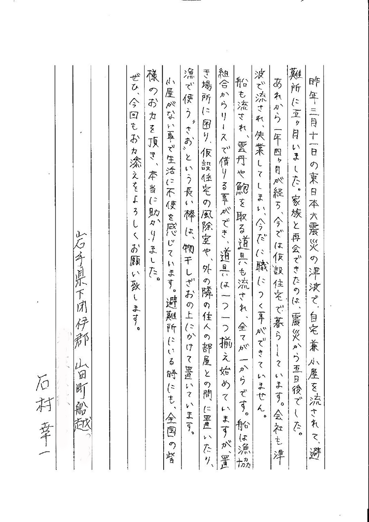 昨年三月十一日の東日本大震災の津波で、自宅兼小屋を流されて、避
難所に五ヶ月いました。家族と再会できたのは、震災から五日後でした。
あれから一年四ヶ月が経ち、今では仮設住宅で暮らしています。会社も津
波で流され失業してしまい、今だに職につく事ができていません。
船も流され、雲丹や鮑を取る道具も流され、全てが一からです。船は漁協
組合からリースで借りる事ができ、道具は一つ一つ揃え始めていますが、置
き場所に困り、仮設住宅の風除室や、外の隣の住人の部屋との間に置いたり、
漁で使う"さお"という長い棒は、物干しざおの上にかけて置いています。
小屋がない事で生活に不便を感じています。避難所にいる時にも、全国の皆
様のお力を頂き、本当に助かりました。
ぜひ、今回もお力添えをよろしくお願い致します。
岩手県下閉伊郡山田町船越
石村幸一